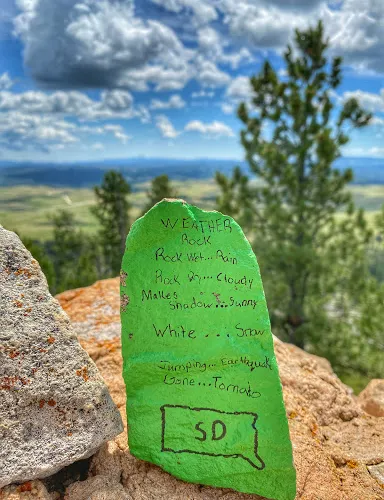 WEATHER
Rock
Rock Wet... Rain
Rock Dry... Cloudy
Makes
Shadow... Sunny
White ... Snow
Jumping... Earthquake
Gone... Tornato
SD